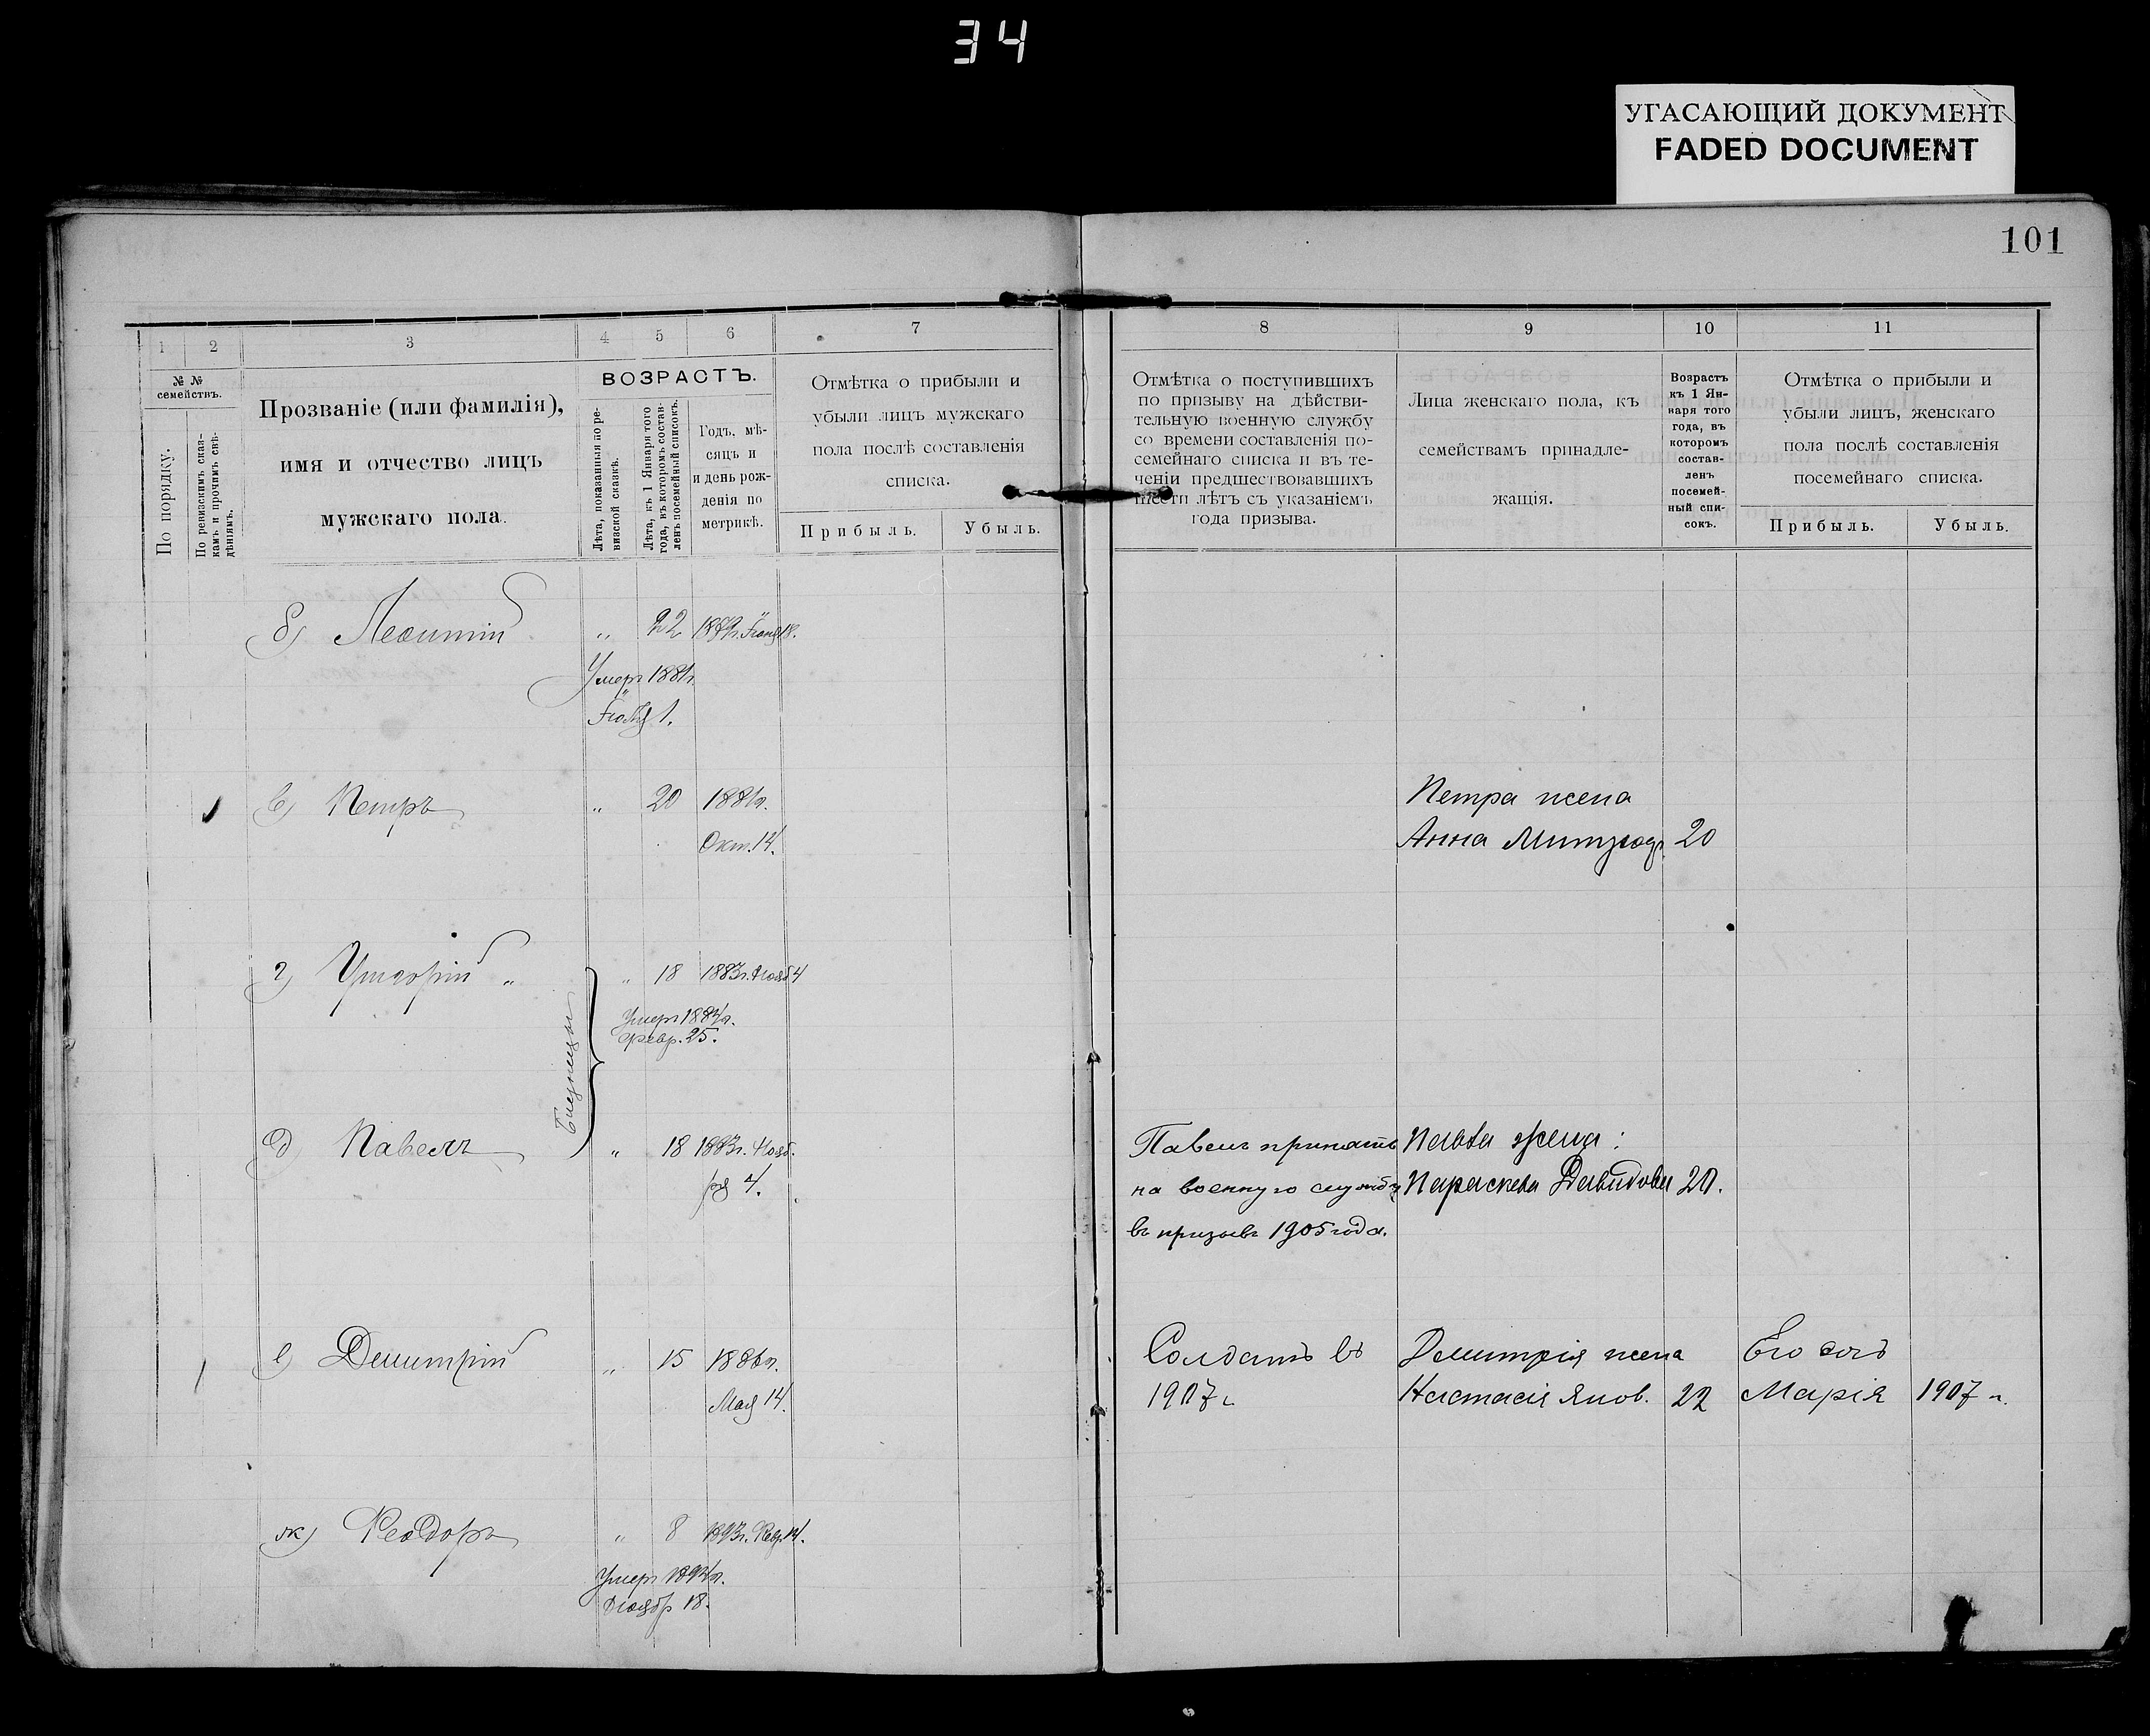 34
УГАСАЮЩИЙ ДОКУМЕНТ
FADED DOCUMENT
101
1 2 3 4 5 6 7
№ № семействъ.
По порядку.
По ревизскимъ сказкамъ и прочимъ свѣдѣніямъ.
Прозваніе (или фамилія),
имя и отчество лицъ
мужскаго пола.
ВОЗРАСТЪ.
Лѣта, показанныя по ревизской сказкѣ.
Лѣта, къ 1 Января того года, въ которомъ составленъ посемейный списокъ.
Годъ, мѣ-
сяцъ и
и день рож-
денія по
метрикѣ.
Отмѣтка о прибыли и
убыли лицъ мужскаго
пола послѣ составленія
списка.
Прибыль. Убыль.
8 9 10 11
Отмѣтка о поступившихъ
по призыву на дѣйстви-
тельную военную службу
со времени составленія по-
семейнаго списка и въ те-
ченіи предшествовавшихъ
шести лѣтъ съ указаніемъ
года призыва.
Лица женскаго пола, къ
семействамъ принадле-
жащія.
Возрастъ
къ 1 Ян-
варя того
года, въ
которомъ
состав-
ленъ
посемей-
ный спи-
сокъ.
Отмѣтка о прибыли и
убыли лицъ, женскаго
пола послѣ составленія
посемейнаго списка.
Прибыль. Убыль.
б) " 22
Умеръ 1881г.
1.
в) Петръ " 20 1881г.
Окт. 14.
Петра жена
Анна 20
г) " " 18 1883г. Нояб 4
Умеръ 1884г.
Февр. 25.
Близнецы
д) Павелъ " 18 1883г. Нояб.
ря 4.
Павелъ принятъ
на военную службу
въ призывъ 1905 года.
Павла жена:
Параскева Давидова 20.
е) Димитрій " 15 1886г.
Мая 14.
Солдатъ въ
1907 г.
Димитрія жена
Настасія Яков. 22
Его дочь
Марія 1907 г.
ж) Феодоръ " 8 1893г. Февр. 14.
Умеръ 1894г.
18.